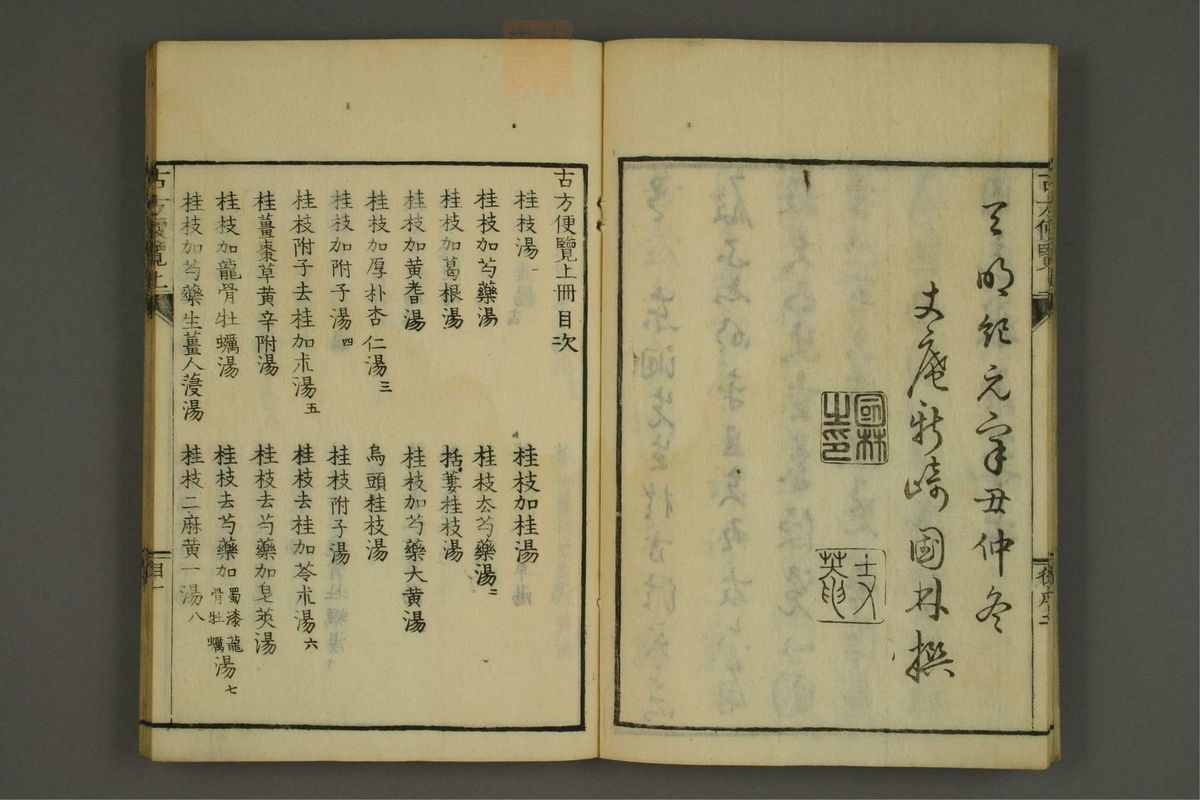 天明紀元辛丑仲冬
丈庵新崎國林撰
國林之印
丈菴
古方便覽上冊目次
桂枝湯一
桂枝加桂湯
桂枝加芍藥湯
桂枝去芍藥湯二
桂枝加葛根湯
栝蔞桂枝湯
桂枝加黄耆湯
桂枝加芍藥大黄湯
桂枝加厚朴杏仁湯三
烏頭桂枝湯
桂枝加附子湯四
桂枝附子湯
桂枝附子去桂加朮湯五
桂枝去桂加苓朮湯六
桂薑棗草黄辛附湯
桂枝去芍藥加皂莢湯
桂枝加龍骨牡蠣湯
桂枝去芍藥加蜀漆龍骨牡蠣湯七
桂枝加芍藥生薑人薓湯
桂枝二麻黄一湯八
古方便覽上
目一
古方便覽上